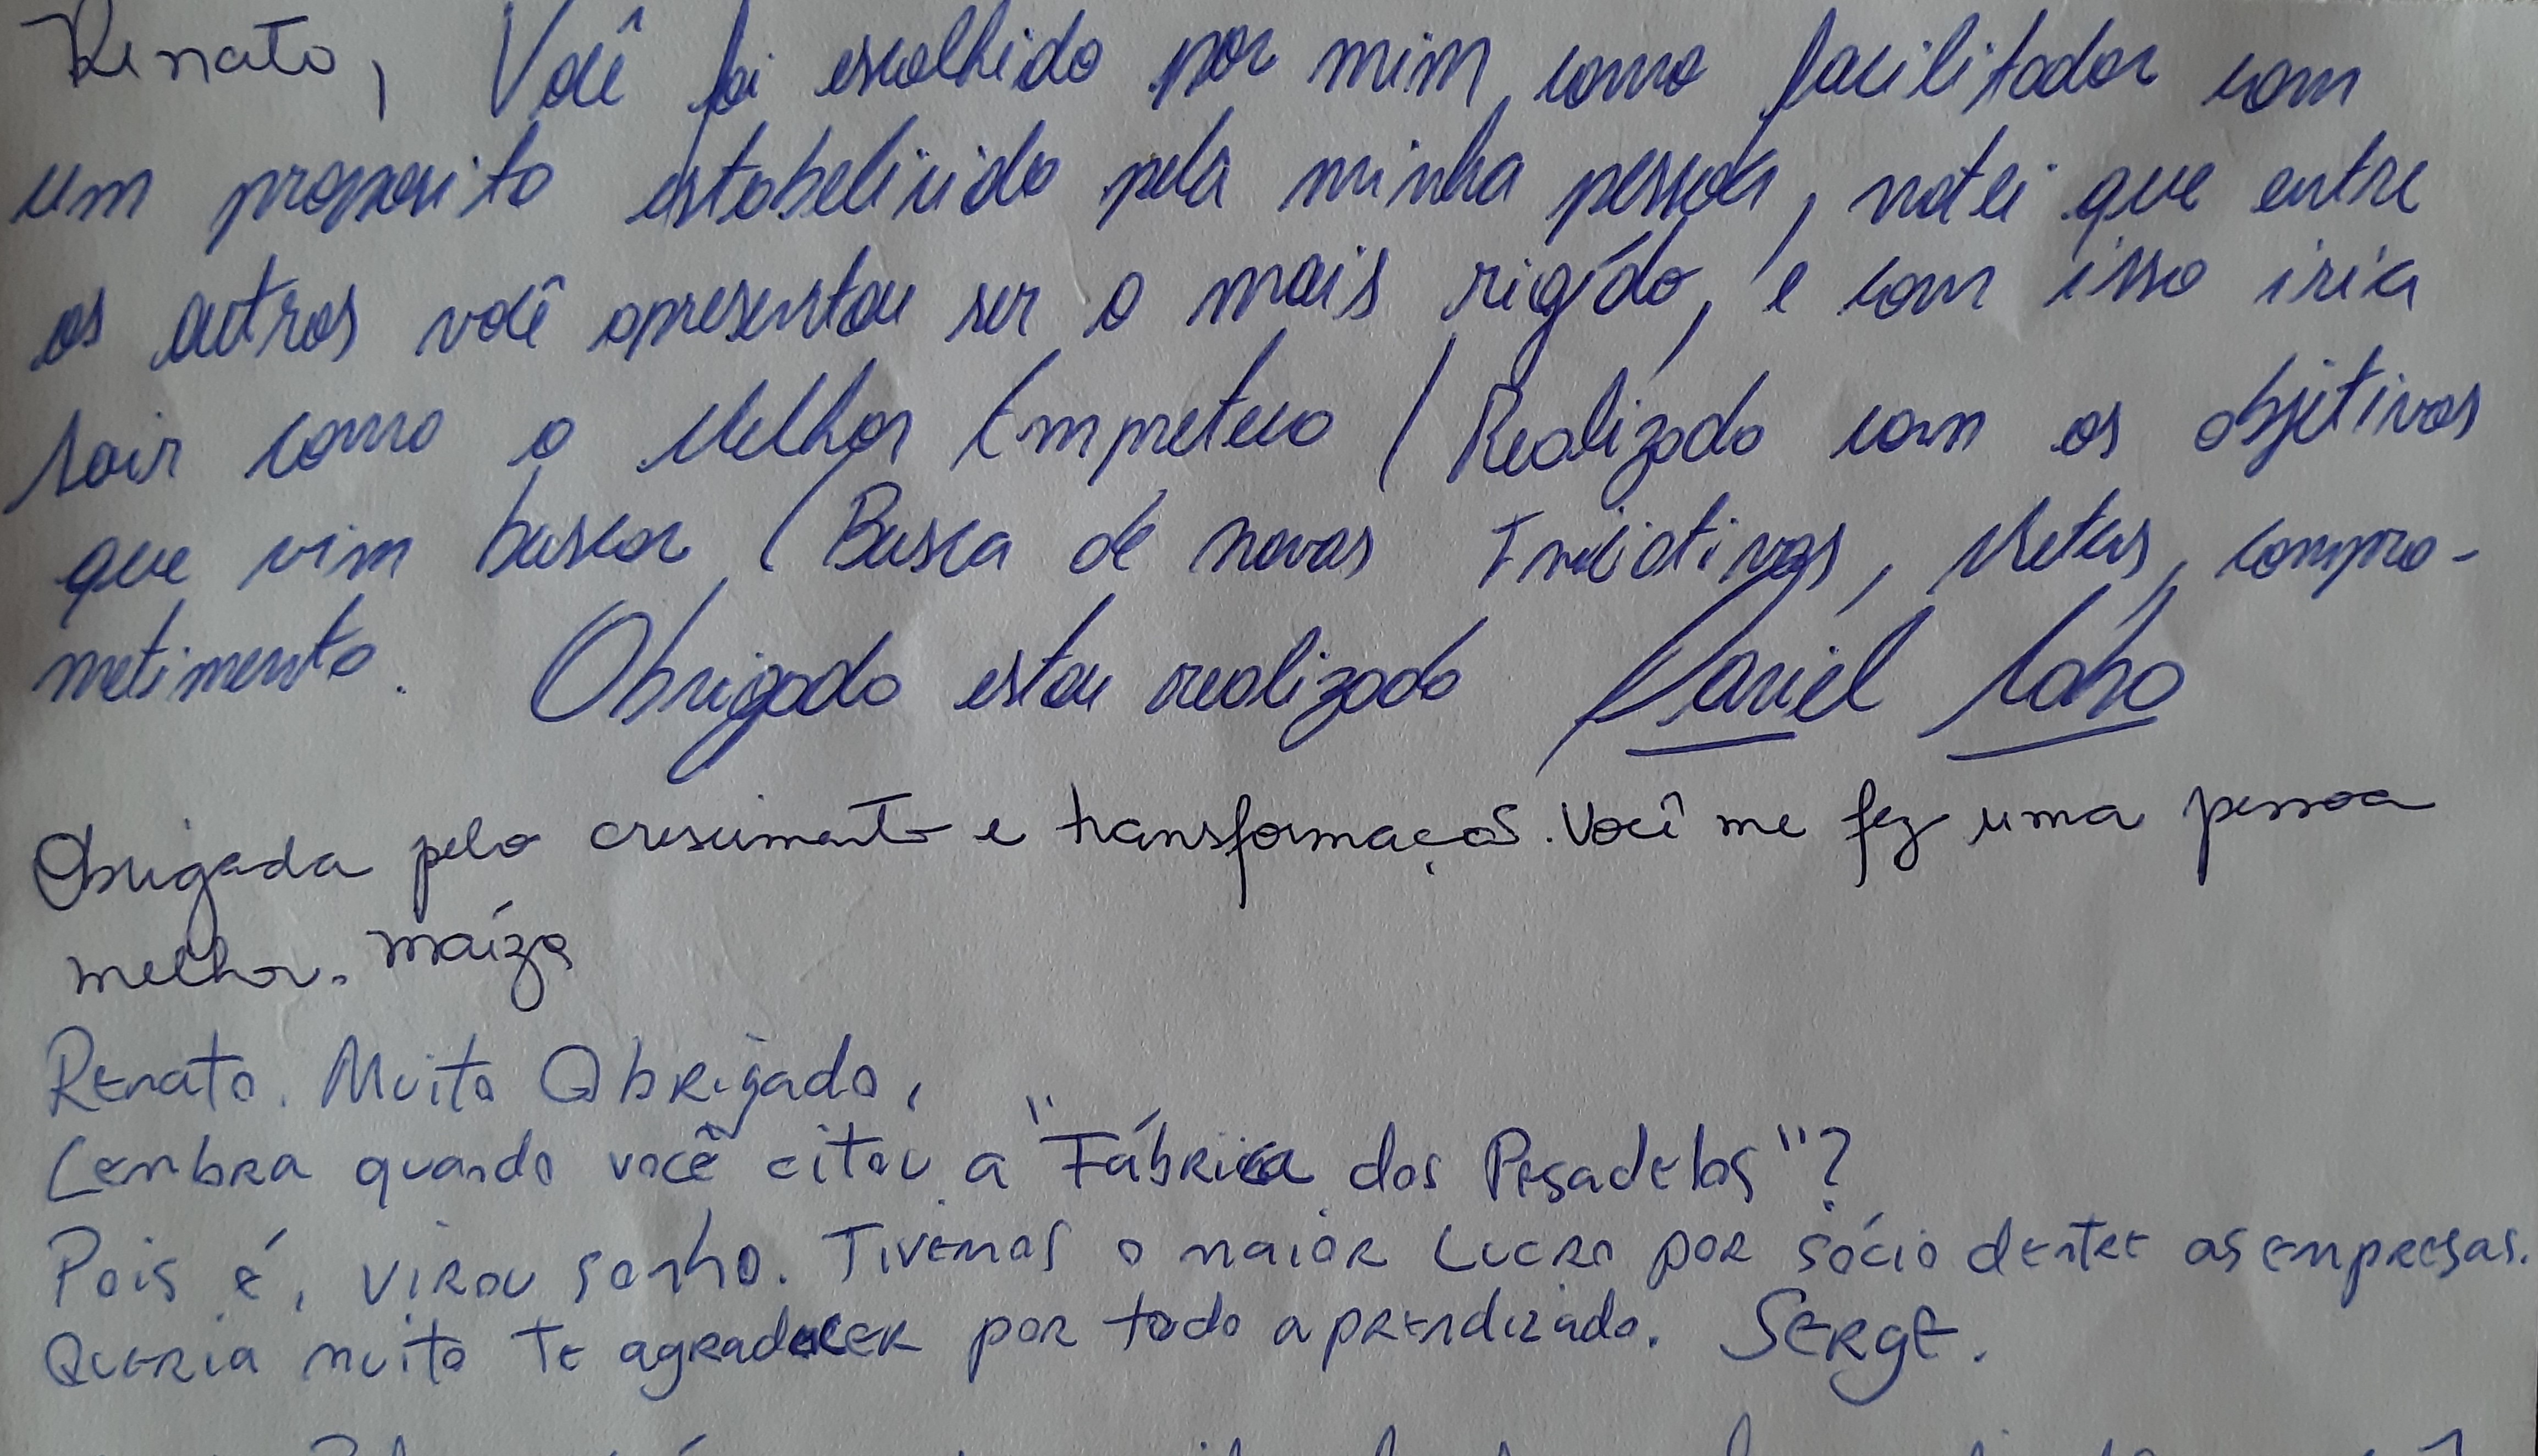 Renato, Você foi escolhido por mim, como facilitador com
um proposito estabelicido pela minha pessoa, notei que entre
os outros você apresentou ser o mais rigído, e com isso iria
sair como o Melhor Empreteco / Realizado com os objetivos
que vim buscar (Busca de novas Iniciativas, Metas, compro-
metimento. Obrigado estou realizado Daniel Lobo
Obrigada pelo crescimento e transformação. Você me fez uma pessoa
melhor. Maíza
Renato. Muito Obrigado,
Lembra quando você citou a "Fábrica dos Pesadelos"?
Pois é, virou sonho. Tivemos o maior lucro por sócio dentre as empresas.
Queria muito te agradecer por todo aprendizado. Serge.